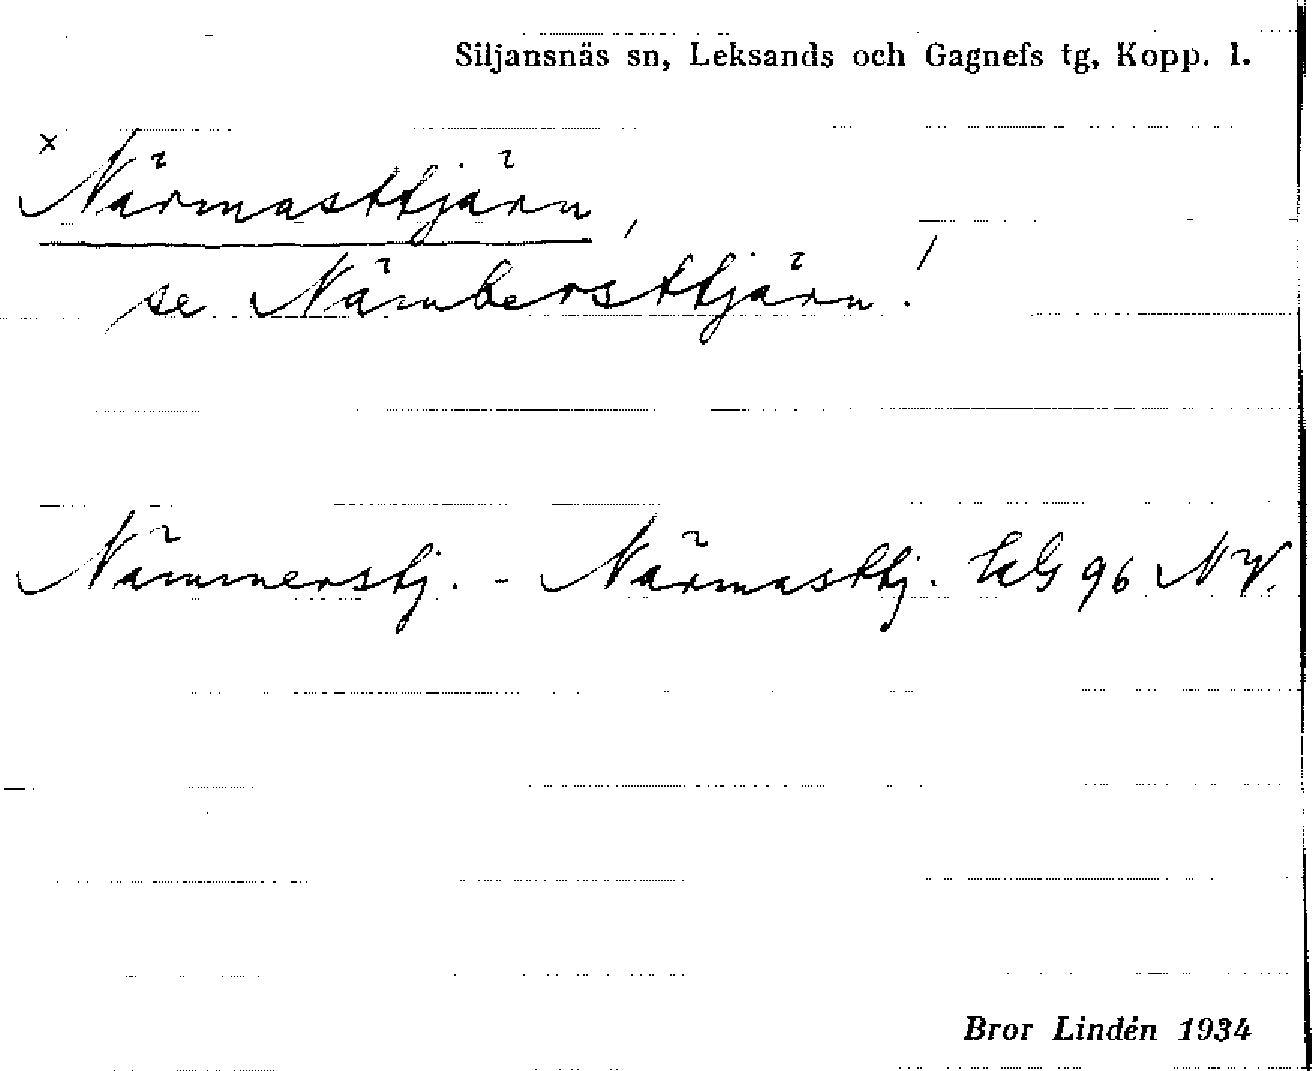 Siljansnäs sn, Leksands och Gagnefs tg, Kopp. l.
x Närmasttjärn,
se Nämbersttjärn!
Nämmerstj. - Närmasttj. EkG 96 NV.
Bror Lindén 1934